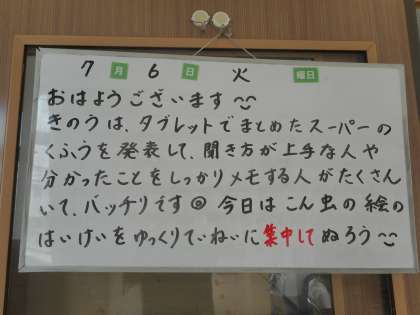 7月6日 火曜日
おはようございます
きのうは、タブレットでまとめたスーパーの
くふうを発表して、聞き方が上手な人や
分かったことをしっかりメモする人がたくさん
いて、バッチリです 今日はこん虫の絵の
はいけいをゆっくりていねいに集中してぬろう